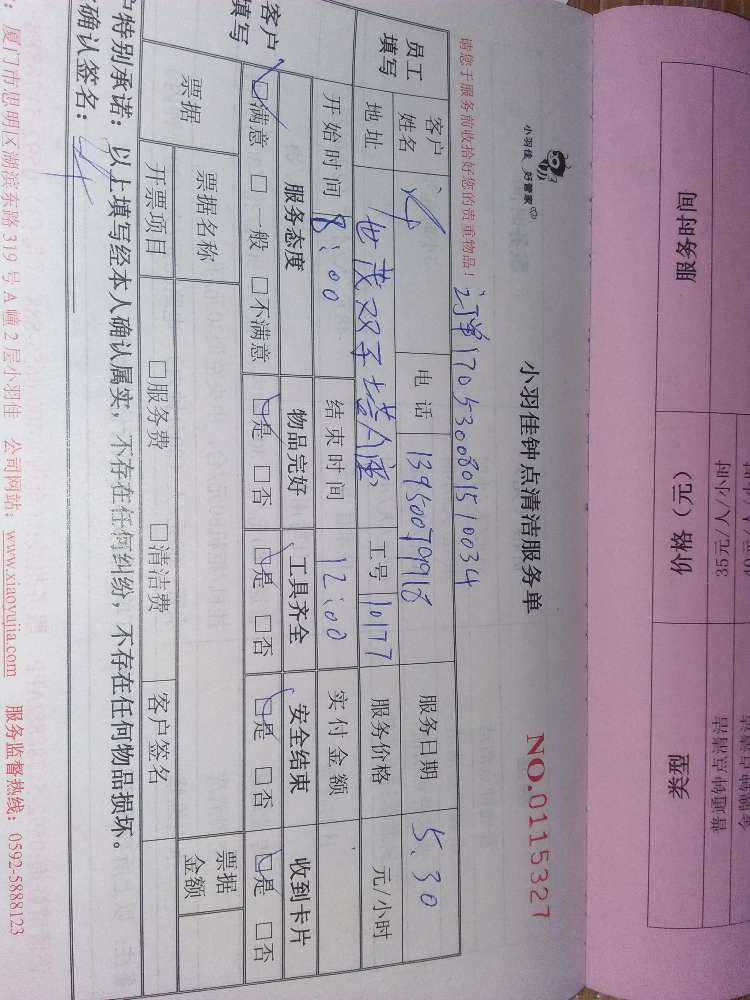 小羽佳 好管家
小羽佳钟点清洁服务单
NO.0115327
请您于服务前收拾好您的贵重物品!
订单1705300801510034
员工填写
客户姓名 电话 13950079918 服务日期 5.30
地址 世茂双子塔A座 工号 10177 服务价格 元/小时
开始时间 8:00 结束时间 12:00 实付金额
客户填写
服务态度 物品完好 工具齐全 安全结束 收到卡片
□满意 □一般 □不满意 □是 □否 □是 □否 □是 □否 □是 □否
票据 票据名称 票据金额
开票项目 □服务费 □清洁费 客户签名
户特别承诺:以上填写经本人确认属实,不存在任何纠纷,不存在任何物品损坏。
确认签名:
:厦门市思明区湖滨东路319号A幢2层小羽佳 公司网站:www.xiaoyujia.com 服务监督热线:0592-5888123
服务时间 价格(元) 类型
35元/人/小时 普通钟点清洁